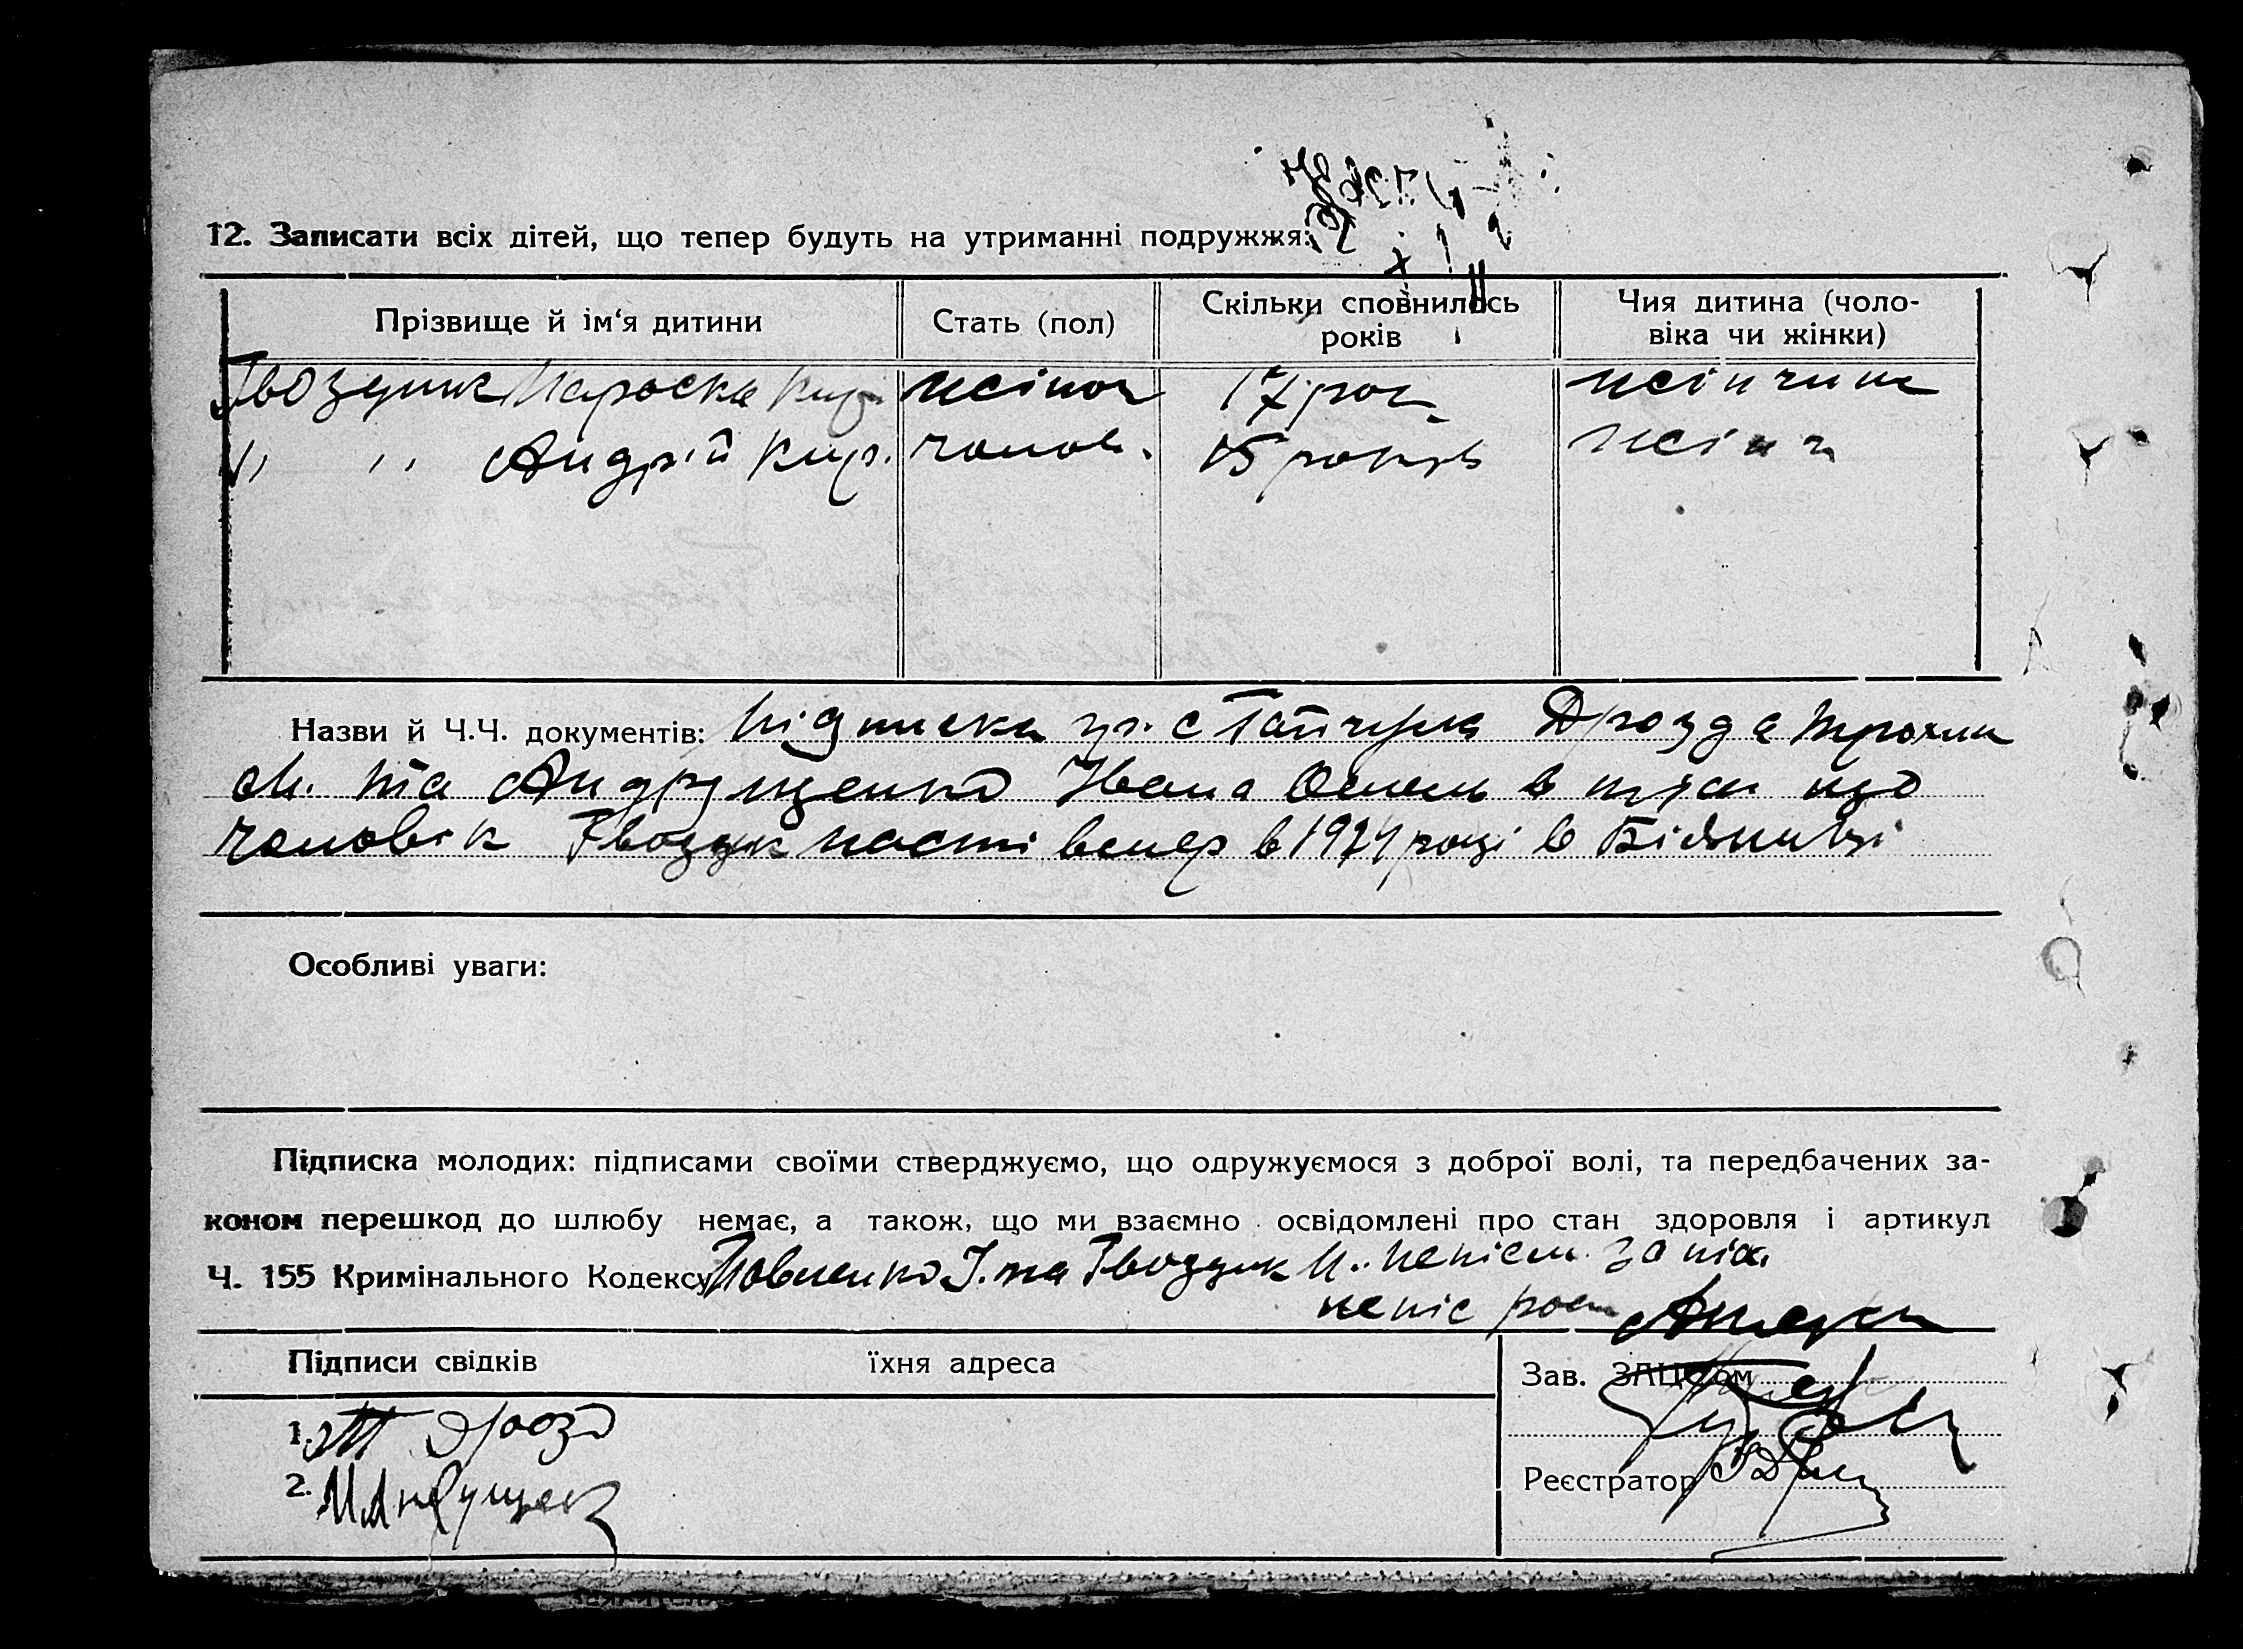 12. Записати всіх дітей, що тепер будуть на утриманні подружжя:
Прізвище й ім'я дитини
Стать (пол)
Скільки сповнилось років
Чия дитина (чоловіка чи жінки)
Гвоздик Параска Кир. жіноч 17 рок. жінчина
" " Андрій Кир. чолов. 15 років жінч
Назви й Ч.Ч. документів: Підписка гр. с Гайчура Дрозда
М. та Андрущенко Івана в тім що
чоловік Гвоздик вмер в році в
Особливі уваги:
Підписка молодих: підписами своїми стверджуємо, що одружуємося з доброї волі, та передбачених за-
коном перешкод до шлюбу немає, а також, що ми взаємно освідомлені про стан здоровля і артикул
Ч. 155 Кримінального Кодексу Павленко І. та Гвоздик неписьм. за них
Підписи свідків їхня адреса
Зав. ЗАЦСом
1. Т Дрозд
2. И Андрущенк
Реєстратор